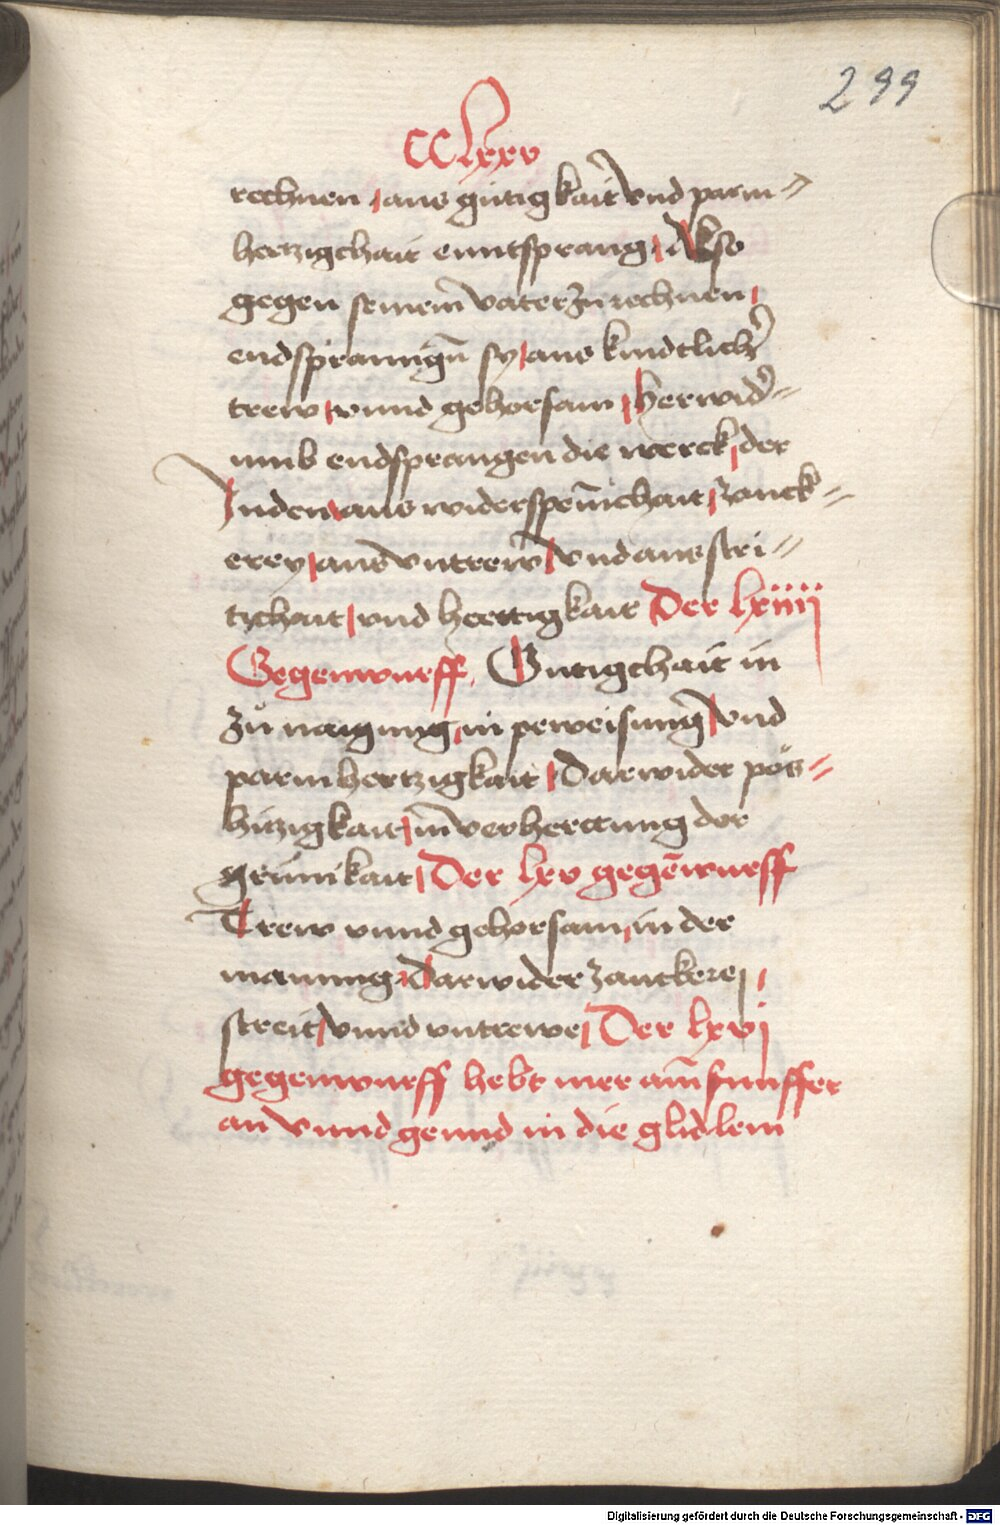 299
CClxxv
rechnen aus gutigkait vnd parm=
hertzigchait enntsprang Also
gegen seinem̄ vater zu rechnen
endspranngn̄ sy aus kindtlicher̄
trew vnnd gehorsam herwid̉=
umb endsprangen die werck der
Juden aus widerspen̄ichait zanck=
erey aus vntrew vnd aus stri=
tichait vnd herttigkait Der lxiiii
Gegenwurff Gutigchait in
zů naigung in peweisung vnd
parmhertzigkait Darwider pos=
hitzigkait in verherttung der
grün̄ikait Der lxv gegēwurff
Trew vnnd gehorsam in der
manung Darwider zanckerej
streit vnnd vntrewe Der lxvj
gegenwurff hebt mer am̄ funffer
an vnnd gennd in die glidlein
Digitalisierung gefördert durch die Deutsche Forschungsgemeinschaft - DFG